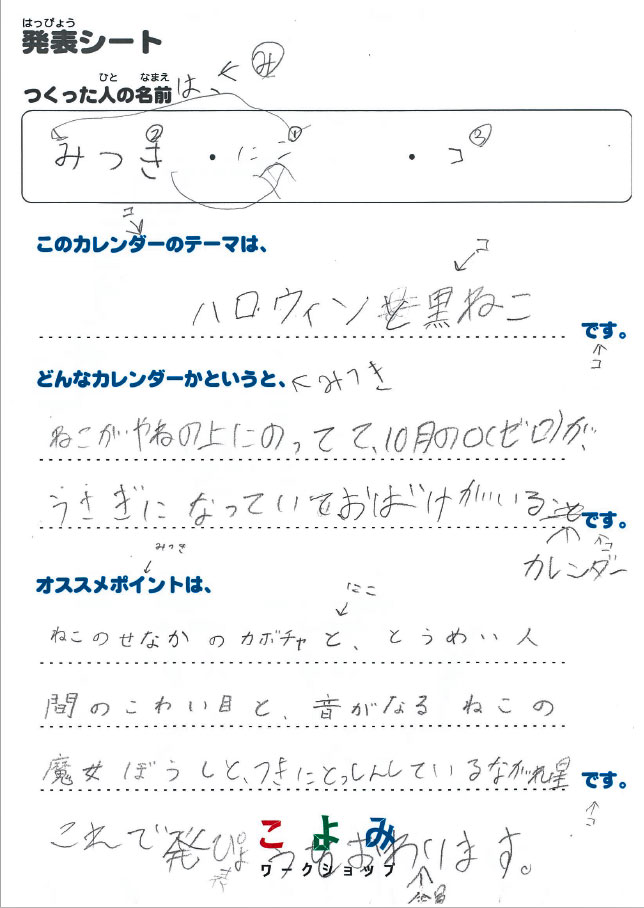 はっぴょう
発表シート
ひと なまえ
つくった人の名前は、← み
② ① ③
みつき ・ にこ ・ コ
コ
このカレンダーのテーマは、
コ
ハロウィンと黒ねこ
です。
コ
どんなカレンダーかというと、←みつき
ねこがやねの上にのってて、10月の0(ゼロ)が、
うさぎになっていておばけがいる
です。
コ
カレンダー
みつき
オススメポイントは、
にこ
ねこのせなかのカボチャと、とうめい人
間のこわい目と、音がなるねこの
魔女ぼうしと、つきにとっしんしているながれ星
です。
コ
これで発ぴょうをおわります。
こよみ
ワークショップ
全員